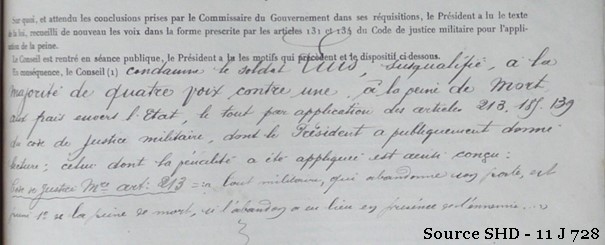 Sur quoi, et attendu les conclusions prises par le Commissaire du Gouvernement dans ses réquisitions, le Président a lu le texte
de la loi, recueilli de nouveau les voix dans la forme prescrite par les articles 131 et 134 du Code de justice militaire pour l'appli-
cation de la peine.
Le Conseil est rentré en séance publique, le Président a lu les motifs qui précèdent et le dispositif ci-dessous.
En conséquence, le Conseil (1) condamne le soldat susqualifié, à la
majorité de quatre voix contre une, à la peine de Mort
aux frais envers l'Etat, le tout par application des articles 213, 139
du code de Justice militaire, dont le Président a publiquement donné
lecture; celui dont la pénalité a été appliquée est ainsi conçu:
Code de Justice Mre art: 213 = tout militaire, qui abandonne son poste, est
puni 1° de la peine de mort, si l'abandon a eu lieu en présence de l'ennemi
Source SHD - 11 J 728